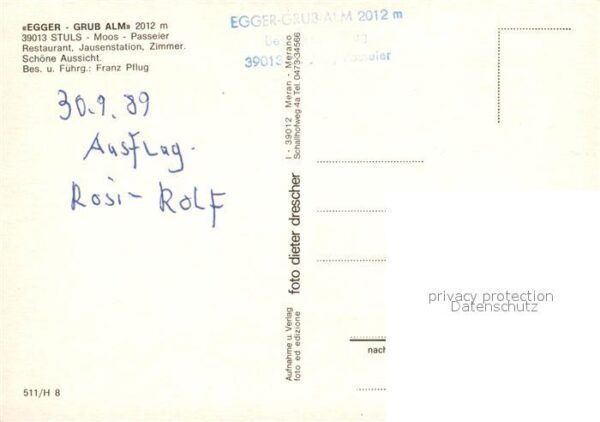 «EGGER - GRUB ALM» 2012 m
39013 STULS - Moos - Passeier
Restaurant, Jausenstation, Zimmer.
Schöne Aussicht.
Bes. u. Führg.: Franz Pflug
EGGER-GRUB ALM 2012 m
39013 Passeier
30.9.89
Ausflug.
Rosi - ROLF
Aufnahme u. Verlag
foto ed edizione
foto dieter drescher
I - 39012 Meran - Merano
Schallhofweg 4a Tel. 0473-34566
privacy protection
Datenschutz
nach
511/H 8